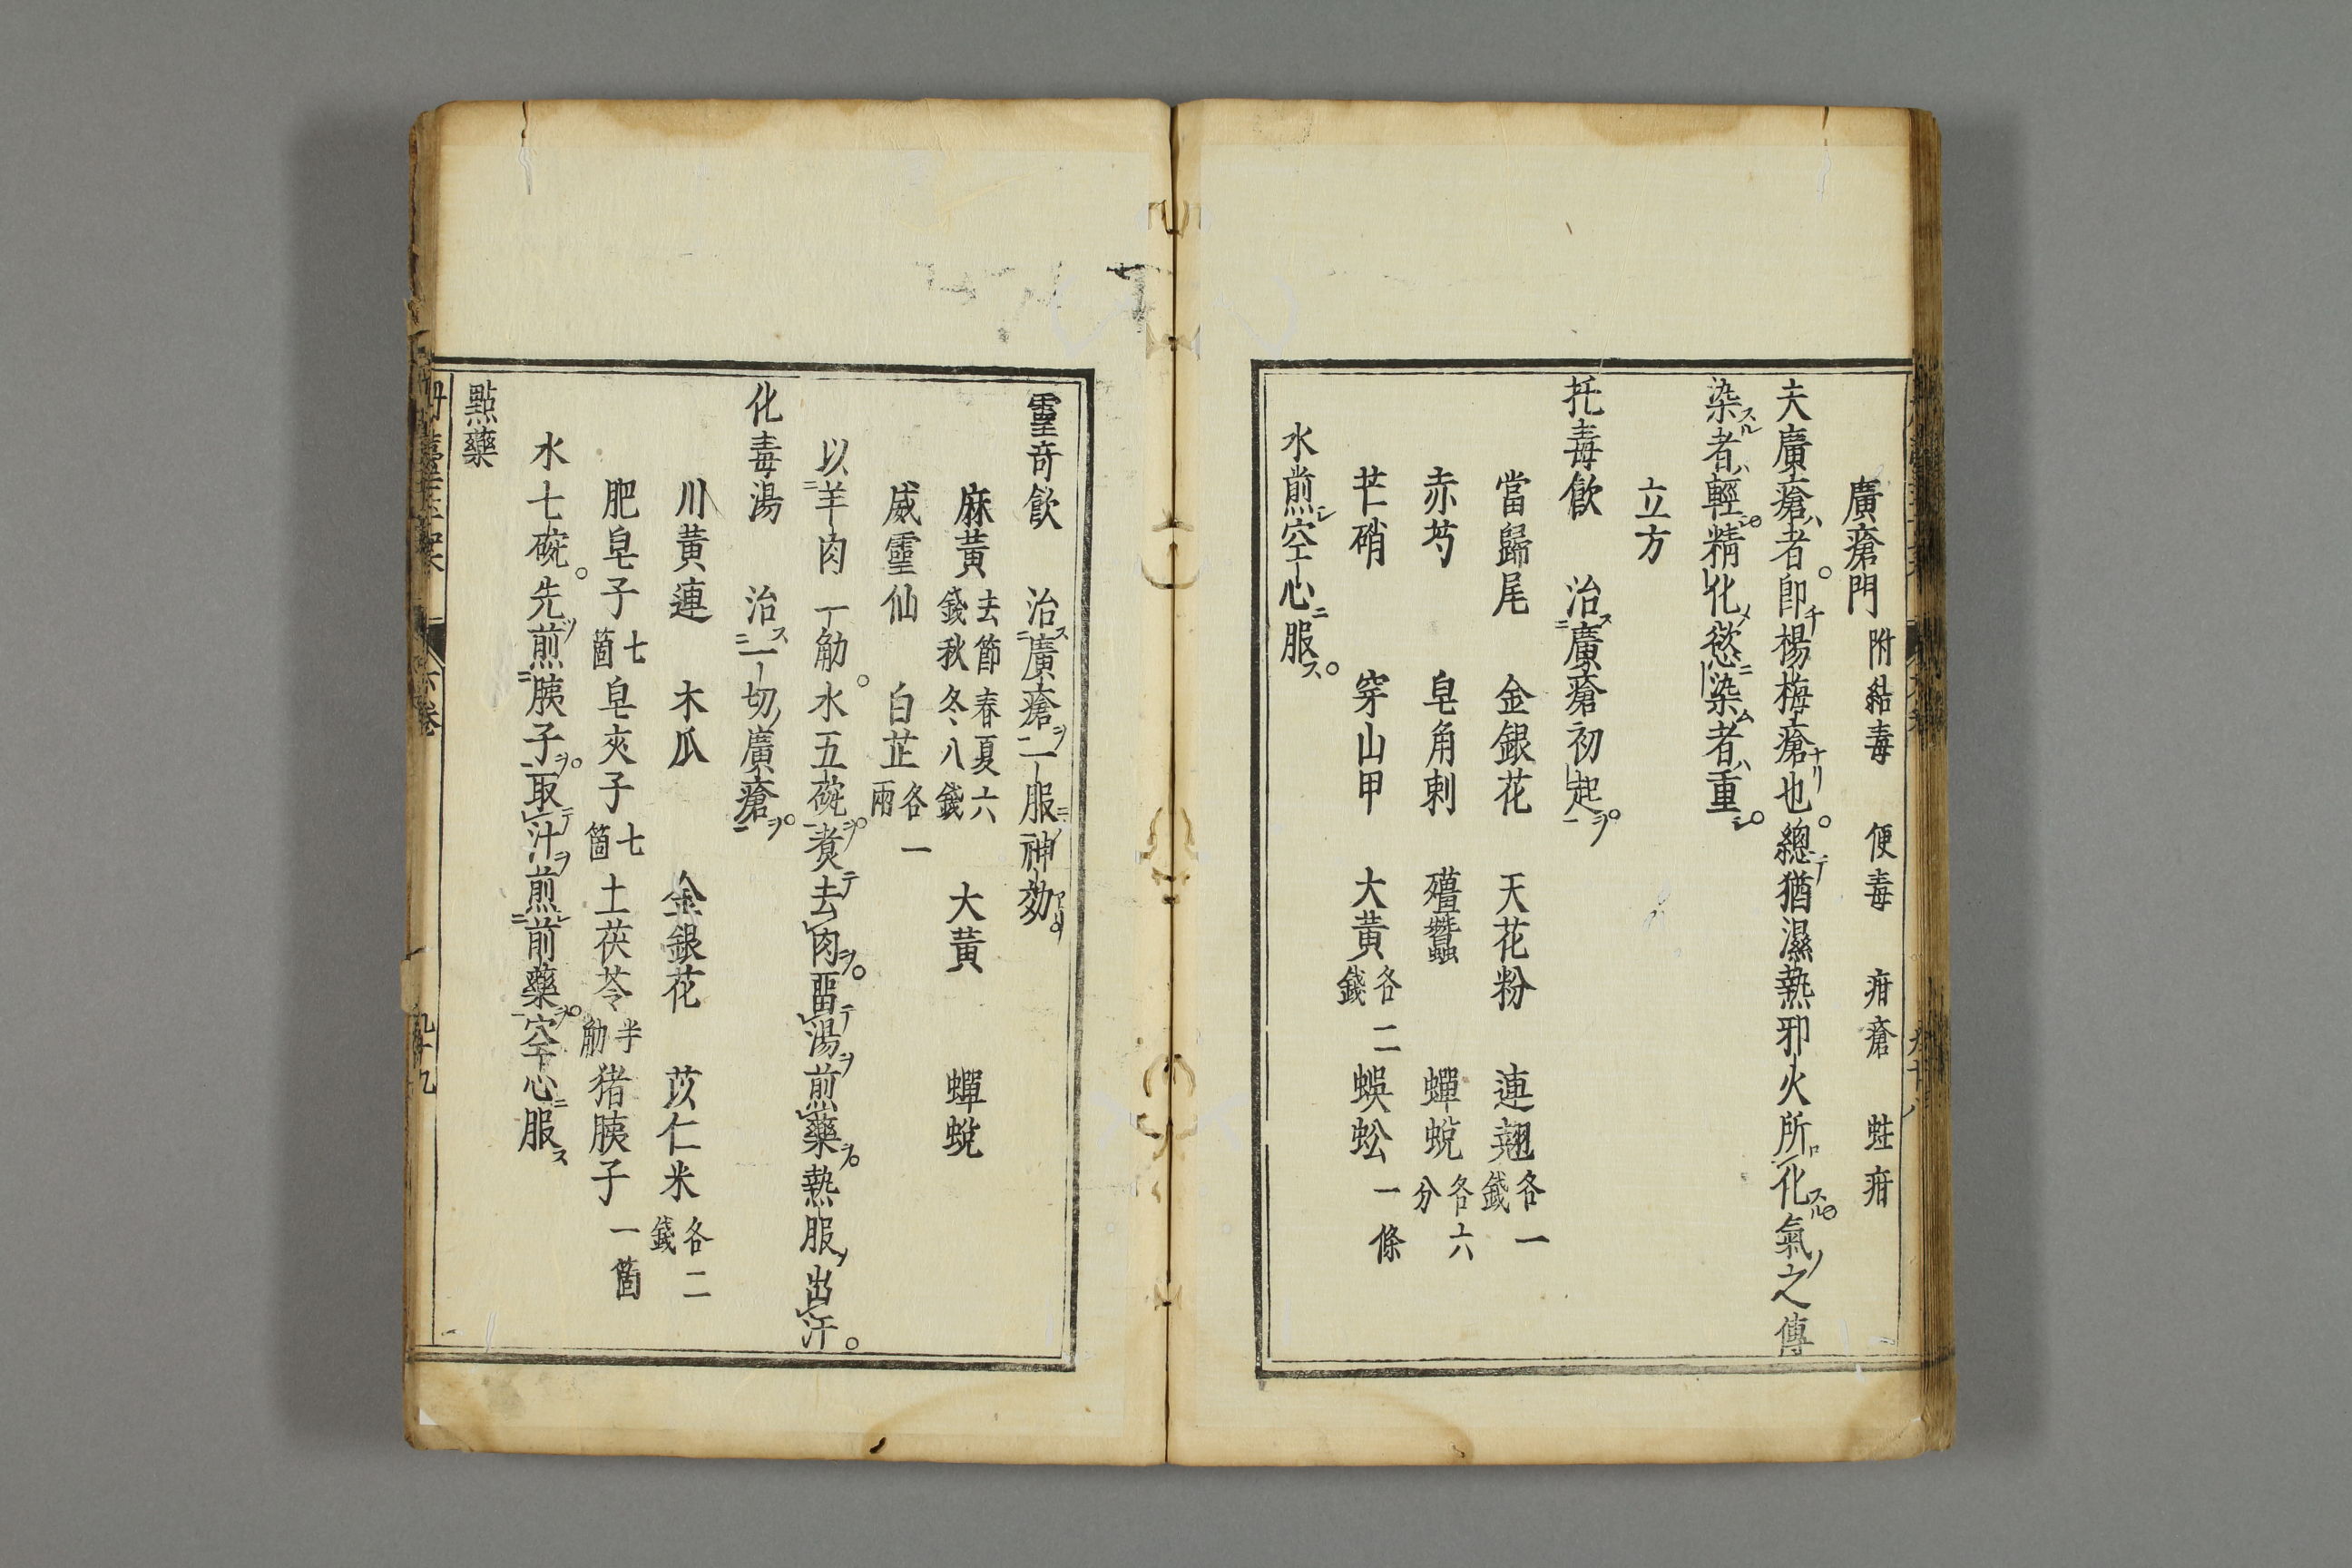 廣瘡門 附結毒 便毒 疳瘡 蛀疳
夫廣瘡者即楊梅瘡也總猶濕熱邪火所化氣之傳
染者輕精化慾染者重
立方
托毒飮 治廣瘡初起
當歸尾 金銀花 天花粉 連翹 各一錢
赤芍 皂角刺 殭蠶 蟬蛻 各六分
芒硝 穿山甲 大黃 各二錢 蜈蚣 一條
水煎空心服
靈奇飮 治廣瘡一服神効
麻黃 去節春夏六錢秋冬八錢 大黃 蟬蛻
威靈仙 白芷 各一兩
以羊肉一觔水五碗煑去肉畱湯煎藥熱服出汗
化毒湯 治一切廣瘡
川黃連 木瓜 金銀花 苡仁米 各二錢
肥皂子 七箇 皂夾子 七箇 土茯苓 半觔 猪胰子 一箇
水七碗先煎胰子取汁煎前藥空心服
點藥
六卷 九十九